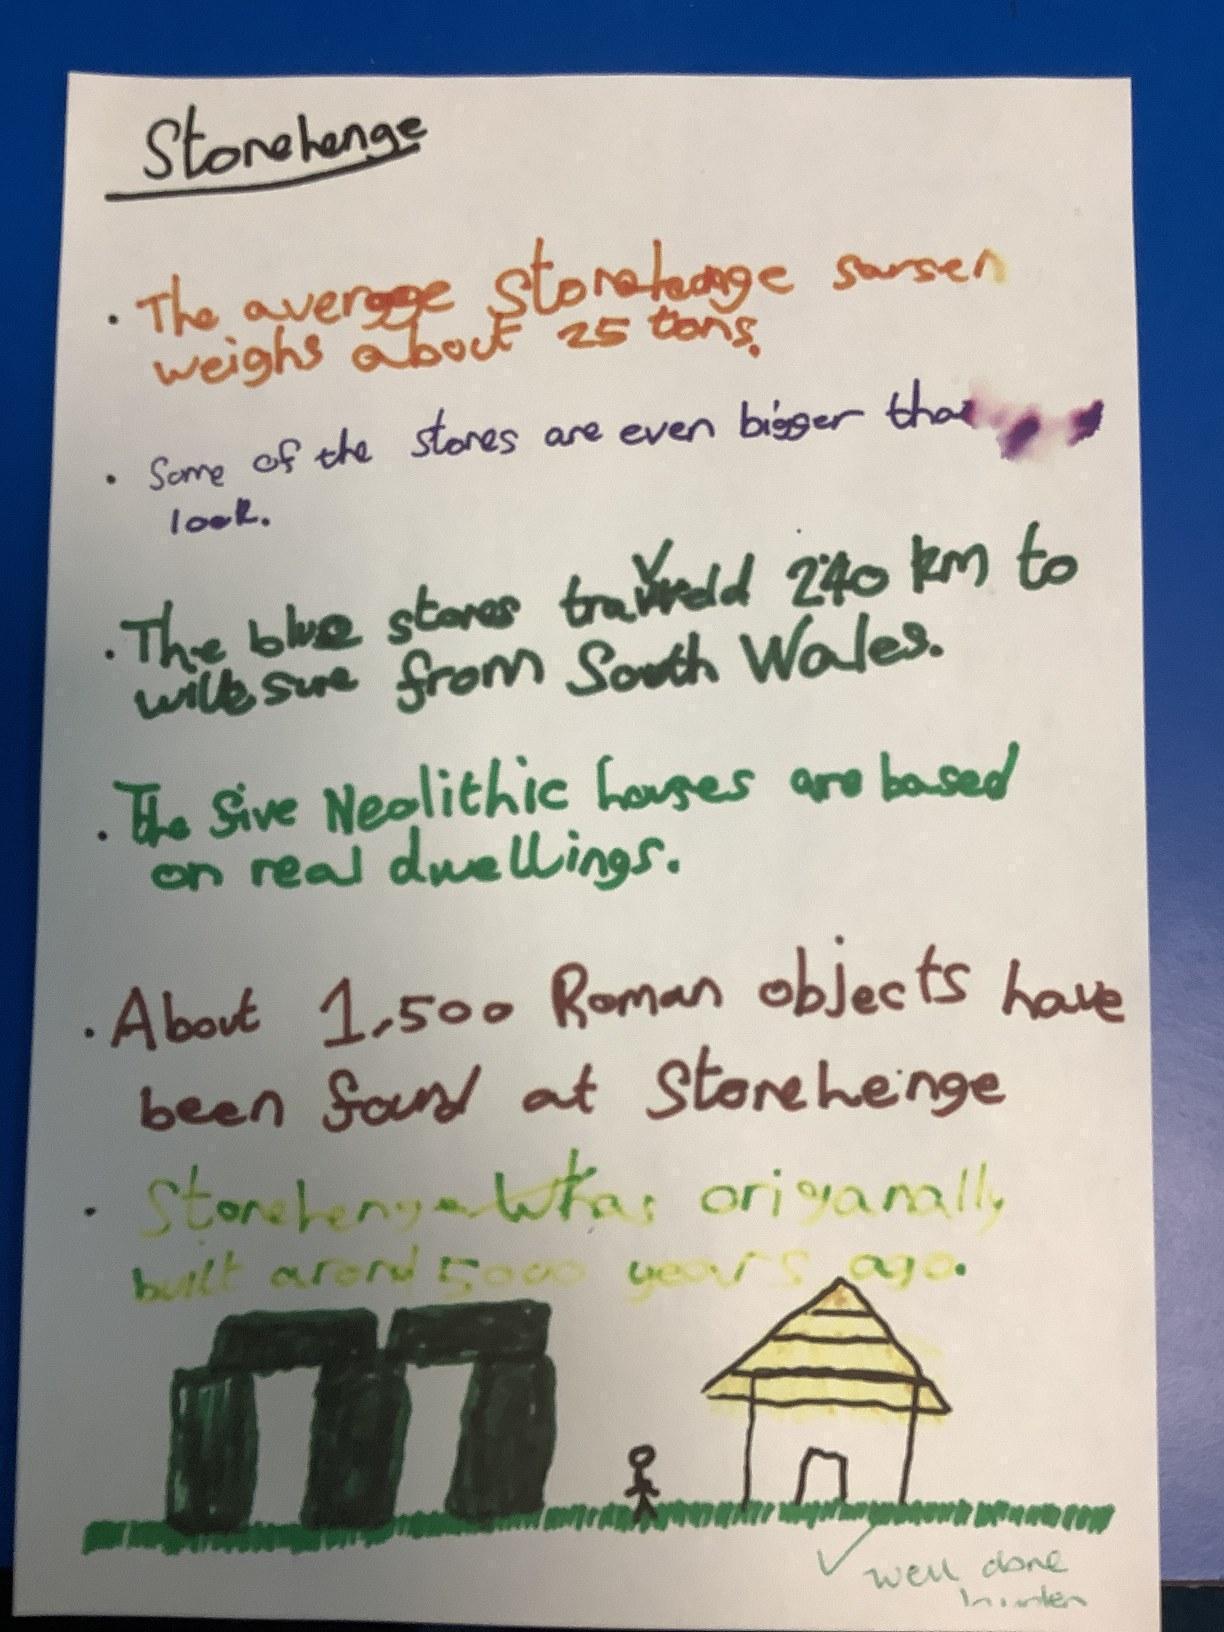 Stonehenge
. The average Stonehenge sarsen
weighs about 25 tons.
. Some of the stones are even bigger than
look.
. The blue stones travelld 240 km to
wiltsure from South Wales.
. The five Neolithic houses are based
on real dwellings.
. About 1,500 Roman objects have
been found at Stonehenge
. Stonehenge was origanally
built arond 5000 years ago.
well done